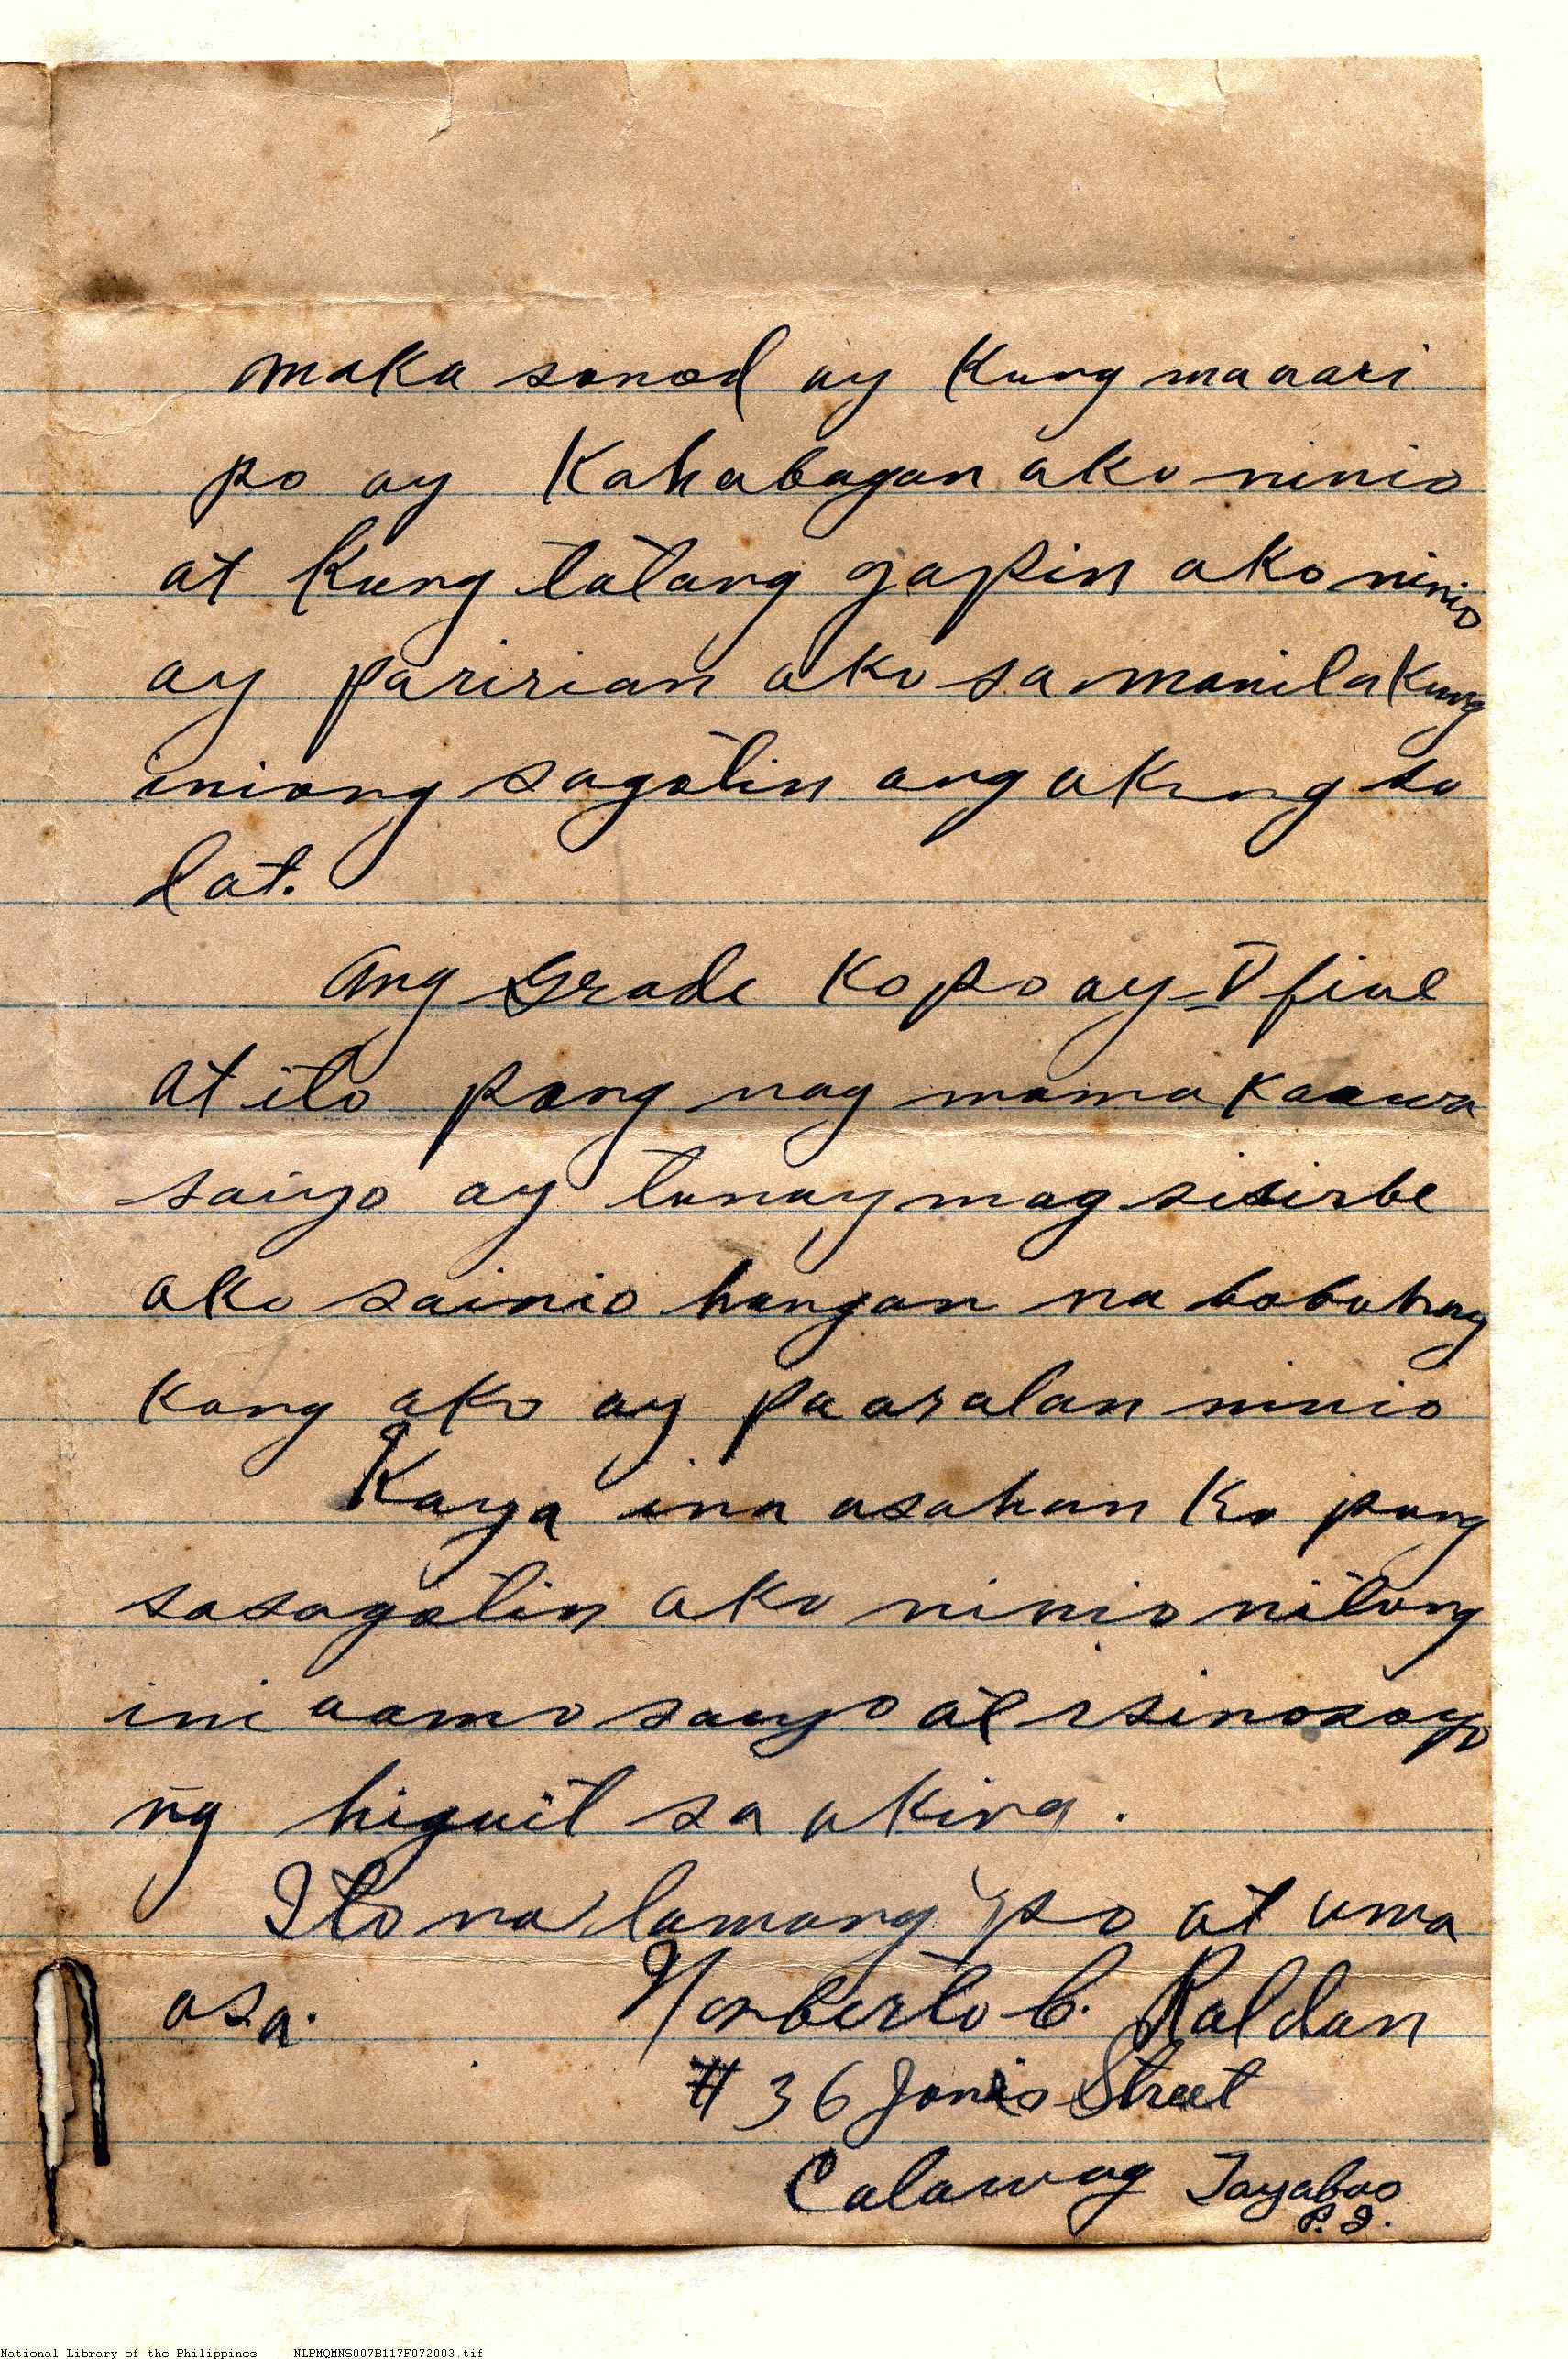 maka sonod ay kung maaari
po ay Kahabagan ako ninio
at kung tatang gapin ako ninio
ay paririan ako sa manila kung
iniong sagotin ang akung su
lat.
Ang Grade Ko po ay V five
at ito pong nag mama kaawa
saiyo ay tunay mag sisirbe
ako sainio hangan na bobuhay
kong ako ay paaralan ninio
Kaya ina asahan Ko pong
sasagotin ako ninio nitong
ini aamo saiyo at
ng higuit sa akin.
Ito na lamang po at uma
asa. Norberto C. Roldan
# 36 Jones Street
Calawag Tayabas
P. I.
National Library of the Philippines NLPMQMNS007B117F072003.tif